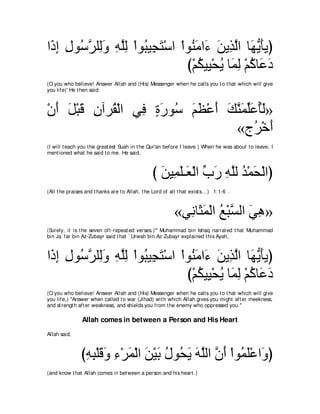 (يَأَيُّهَا الَّذِينَ ءَامَنُواْ اسْتَجِيبُواْ لِلَّهِ وَلِلرَّسُولِ إِذَا
دَعَاكُمْ لِمَا يُحْيِيكُمْ)
(O you who believe! Answer Allah and (His) Messenger when he calls you to that which will give
you life)' He then said:
«لَأُعَلِّمَنَّكَ أَعْظَمَ سُورَةٍ فِي الْقُرْآنِ قَبْلَ أَنْ
أَخْرُجَ»
(I will teach you the greatest Surah in the Qur'an before I leave.) When he was about to leave, I
mentioned what he said to me. He said,
(الْحَمْدُ لِلَّهِ رَبِّ الْعَـلَمِينَ )
(All the praises and thanks are to Allah, the Lord of all that exists...) 1:1-6
«هِيَ السَّبْعُ الْمَثَانِي»
(Surely, it is the seven oft-repeated verses.)'' Muhammad bin Ishaq narrated that Muhammad
bin Ja`far bin Az-Zubayr said that `Urwah bin Az-Zubayr explained this Ayah,
(يَأَيُّهَا الَّذِينَ ءَامَنُواْ اسْتَجِيبُواْ لِلَّهِ وَلِلرَّسُولِ إِذَا
دَعَاكُمْ لِمَا يُحْيِيكُمْ)
(O you who believe! Answer Allah and (His) Messenger when he calls you to that which will give
you life,) "Answer when called to war (Jihad) with which Allah gives you might after meekness,
and strength after weakness, and shields you from the enemy who oppressed you.''
Allah comes in between a Person and His Heart
Allah said,
(وَاعْلَمُواْ أَنَّ اللَّهَ يَحُولُ بَيْنَ الْمَرْءِ وَقَلْبِهِ)
(and know that Allah comes in between a person and his heart.)